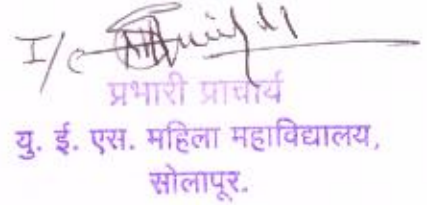 I/c
प्रभारी प्राचार्य
यु. ई. एस. महिला महाविद्यालय,
सोलापूर.